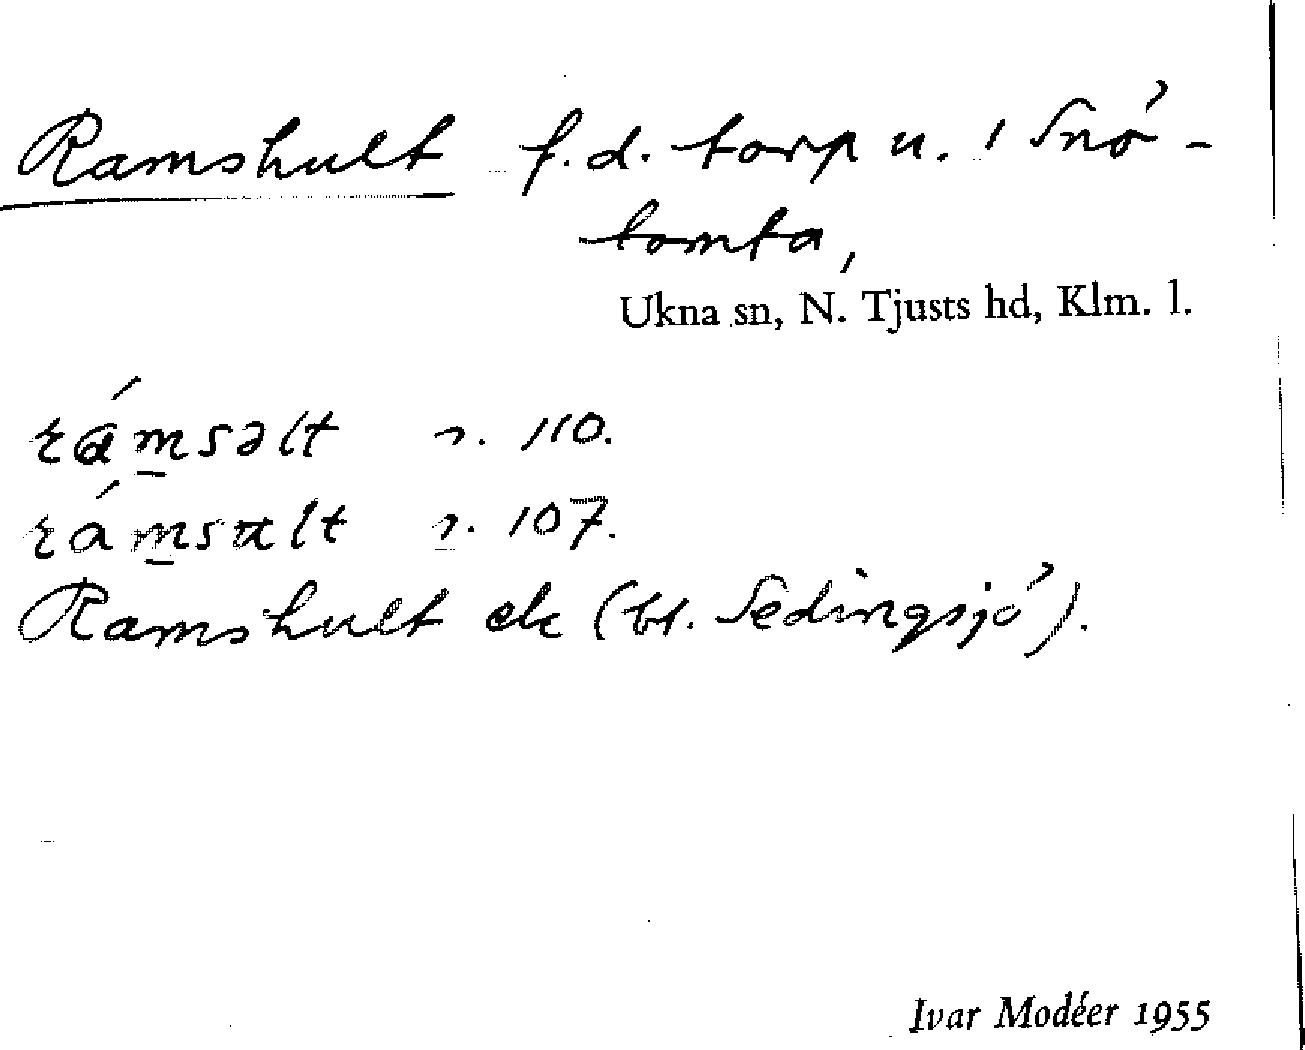 Ramshult f.d. torp u. 1 Snö-
tomta,
Ukna sn, N. Tjusts hd, Klm. l.
rámsəlt r. 110.
rámsalt r. 107.
Ramshult ek (bl. Sedingsjö).
Ivar Modéer 1955